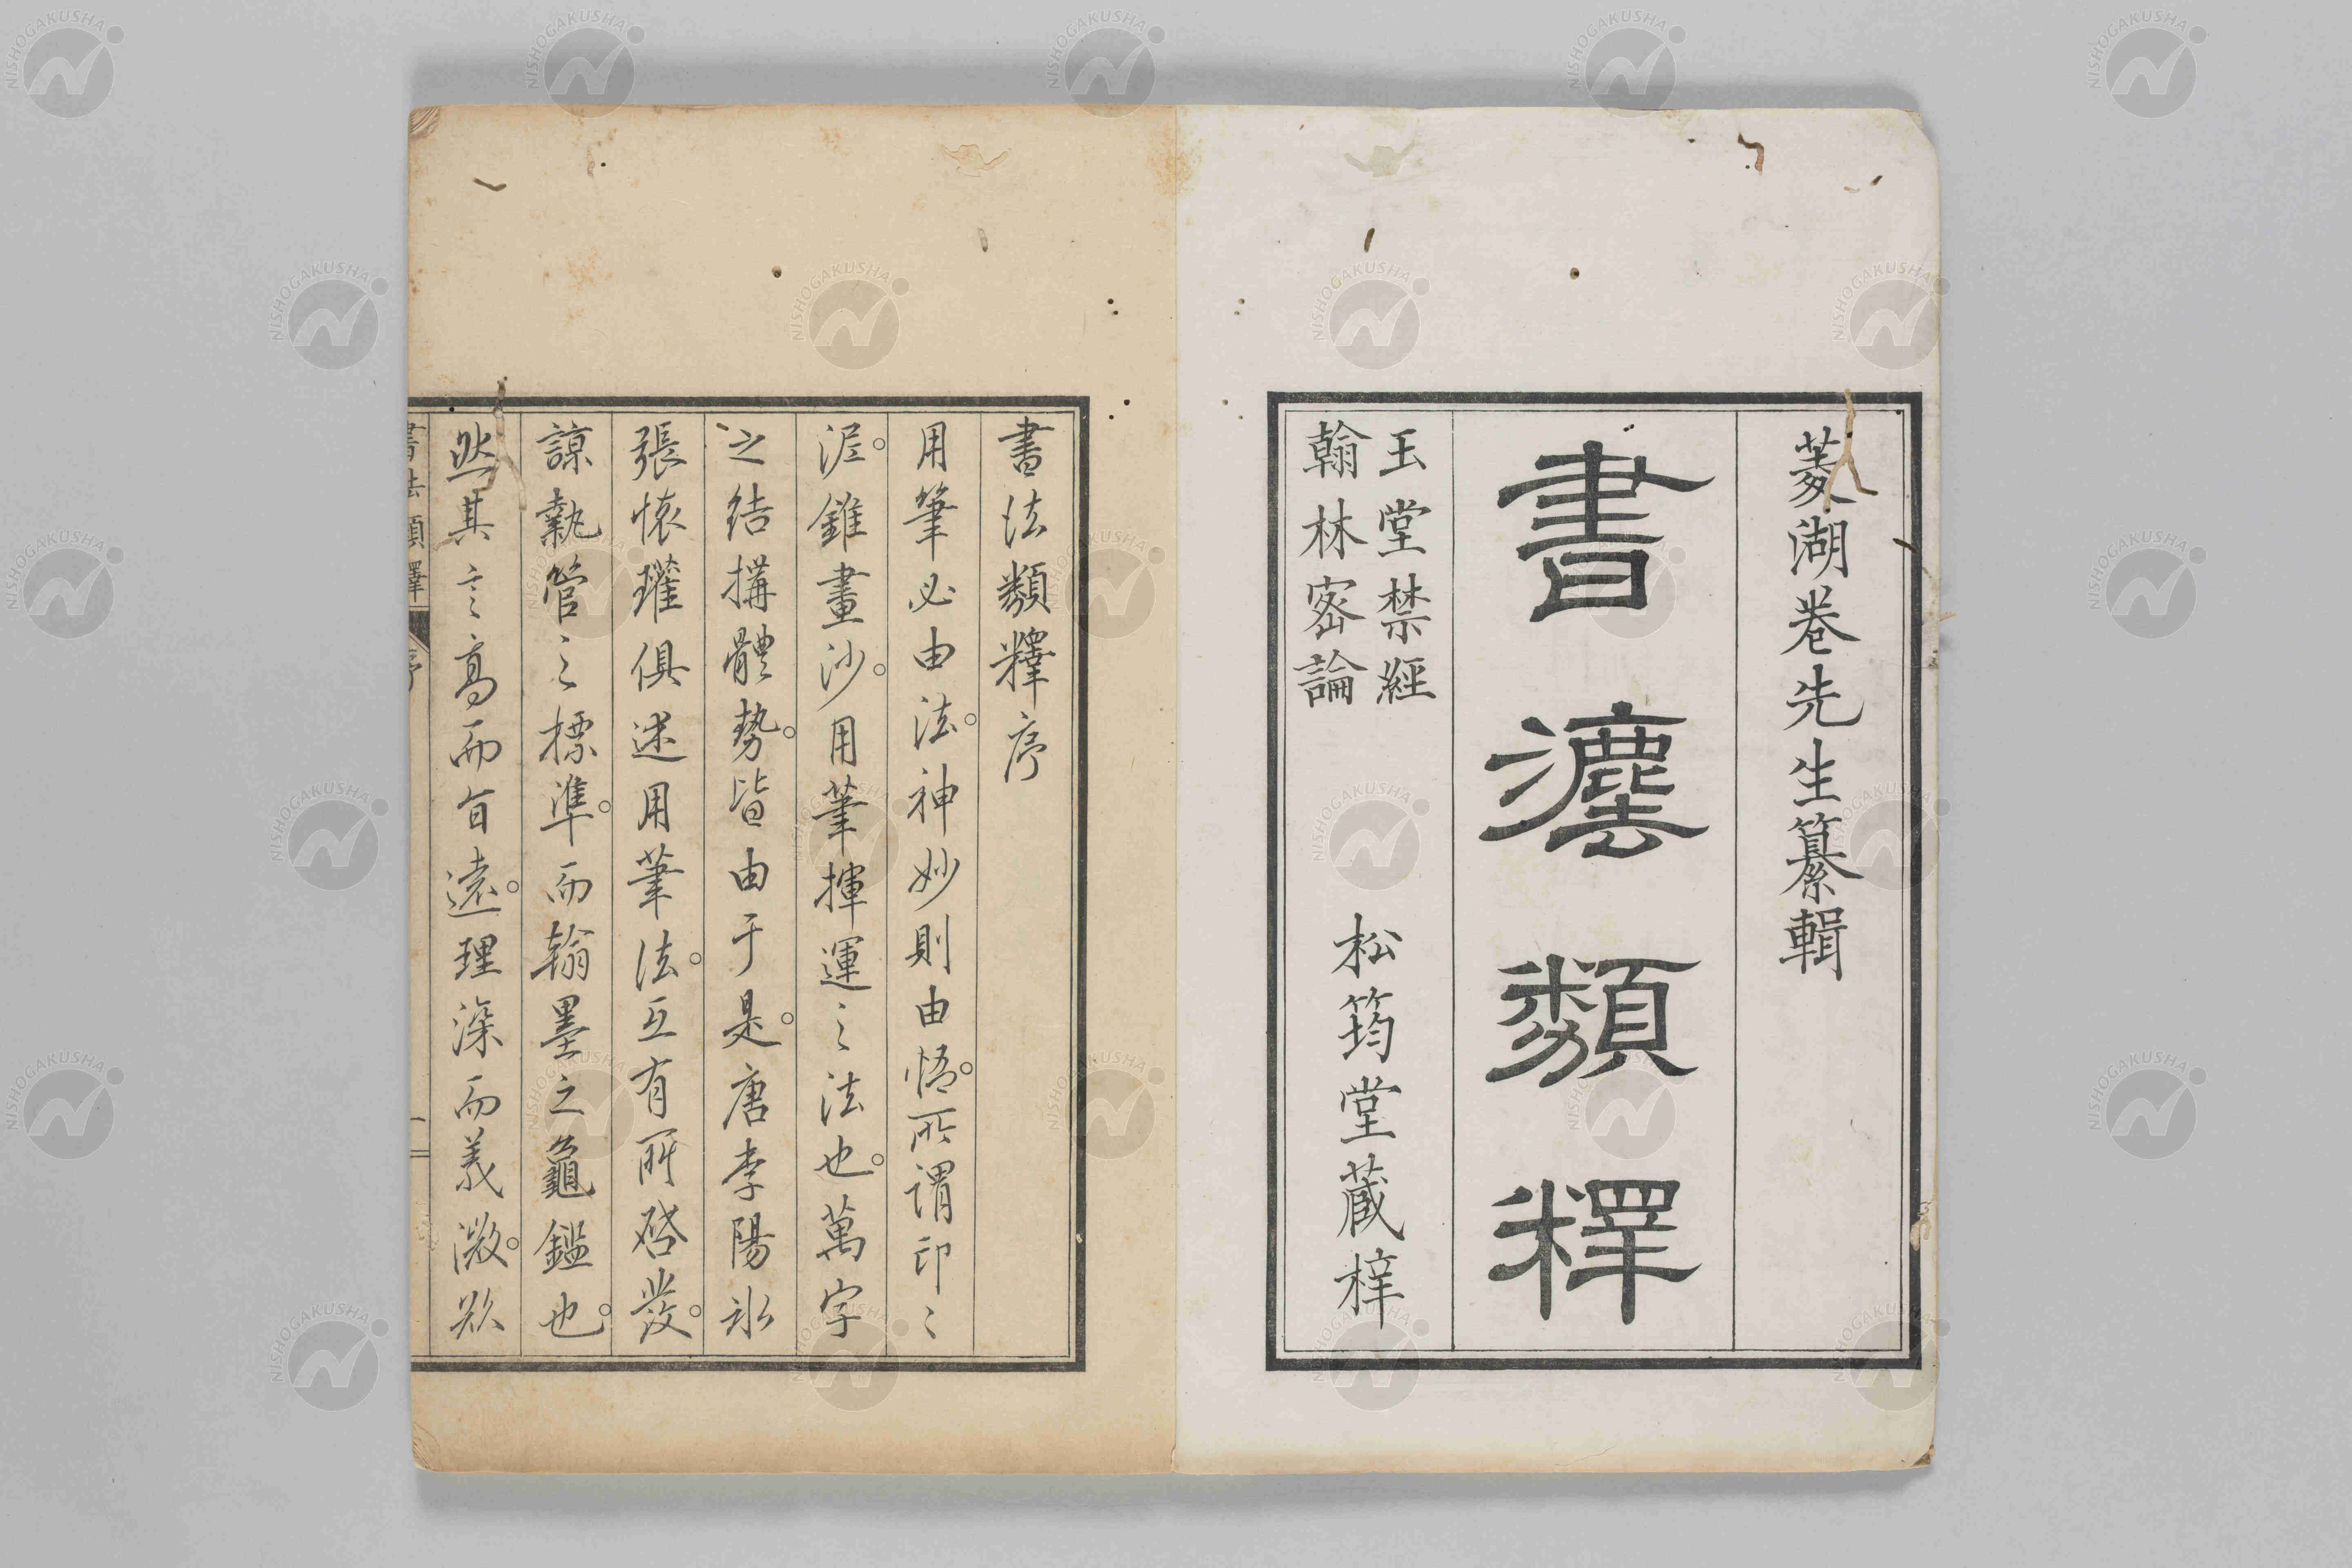 菱湖巻先生纂輯
書灋類釋
玉堂禁經
翰林密論
松筠堂蔵梓
書法類釋序
用筆必由法神妙則由悟所謂印〻
泥錐畫沙用筆揮運之法也萬字
之結搆體勢皆由于是唐李陽冰
張懷瓘俱述用筆法互有所啓發
諒執管之標準而翰墨之龜鑑也
然其言高而旨遠理深而義微欲
書法類釋 序 一
NISHOGAKUSHA